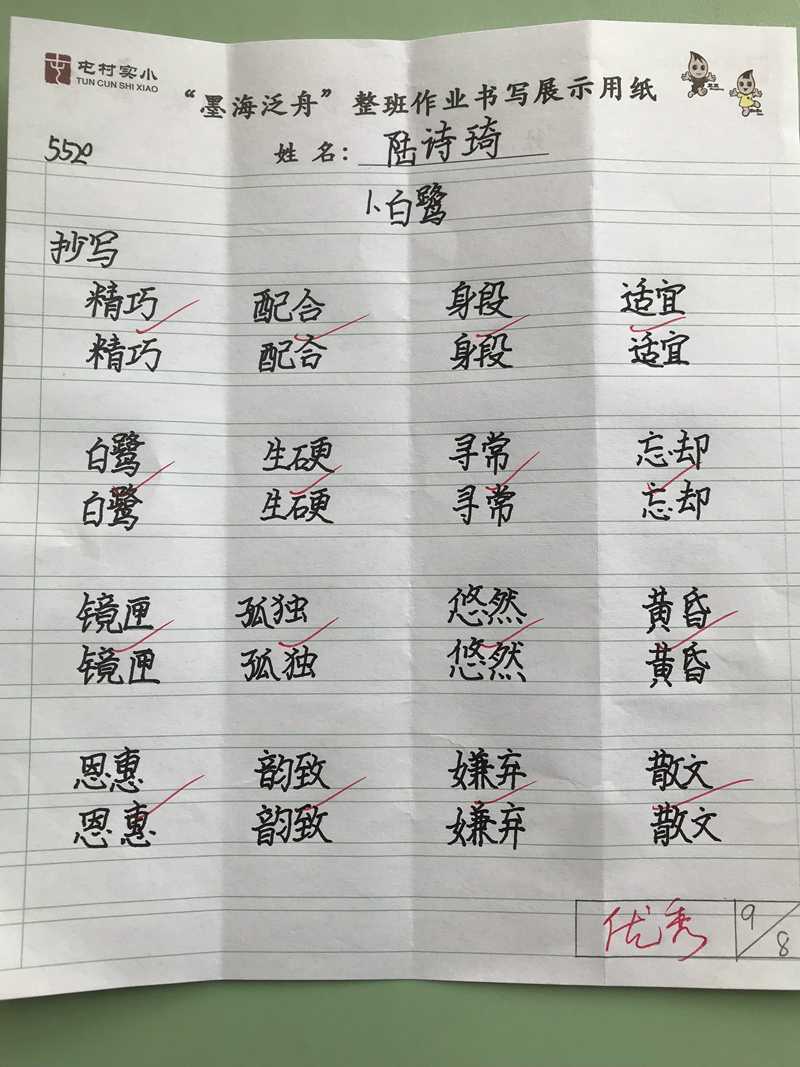 屯村实小
TUN CUN SHI XIAO
“墨海泛舟”整班作业书写展示用纸
5520
姓名：陆诗琦
1、白鹭
抄写
精巧 配合 身段 适宜
精巧 配合 身段 适宜
白鹭 生硬 寻常 忘却
白鹭 生硬 寻常 忘却
镜匣 孤独 悠然 黄昏
镜匣 孤独 悠然 黄昏
恩惠 韵致 嫌弃 散文
恩惠 韵致 嫌弃 散文
优秀 9/8